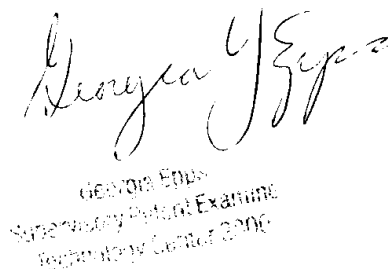 Georgia Y Epps
Georgia Epps
Supervisory Patent Examine
Technology Center 2800